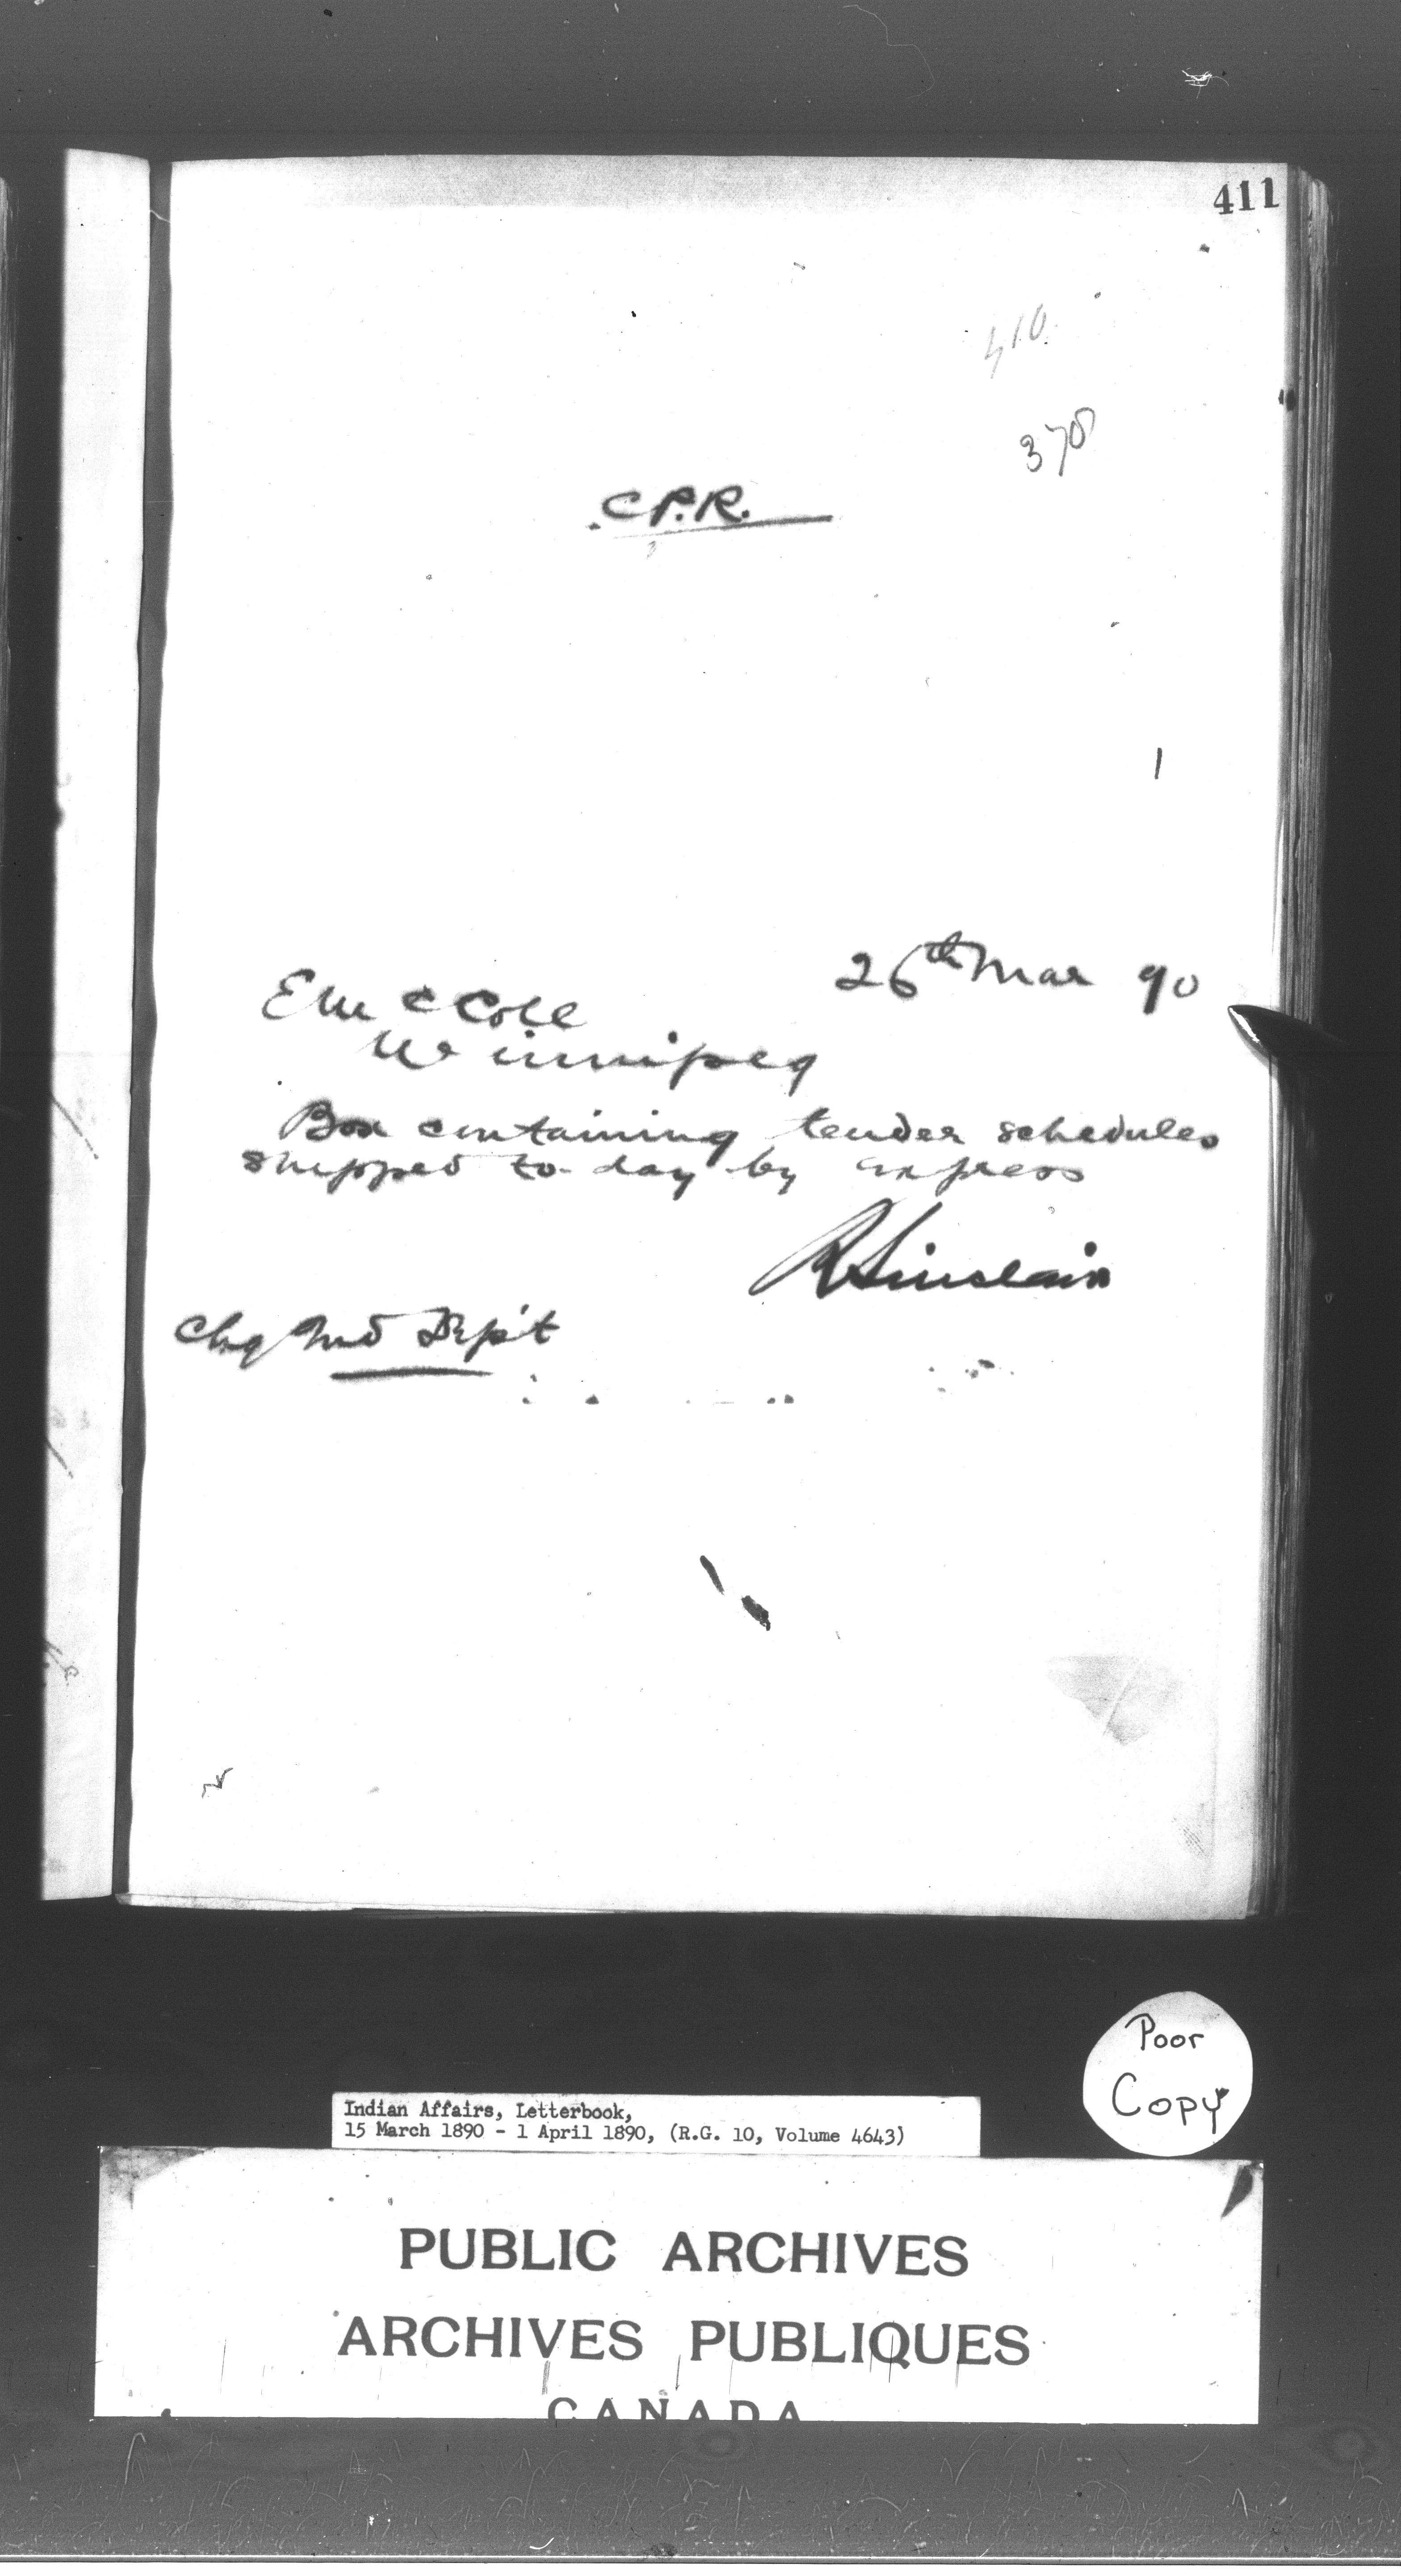 411
410
378
C P.R.
26th Mar 90
E Mc Coll
Winnipeg
Box containing tender schedules
shipped to-day by express
R Sinclair
Chg Ind Dep't
Poor
Copy
Indian Affairs, Letterbook,
15 March 1890 - 1 April 1890, (R.G. 10, Volume 4643)
PUBLIC ARCHIVES
ARCHIVES PUBLIQUES
CANADA